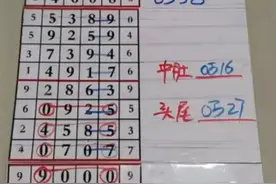 5 5 3 8 9 0
5 9 2 5 9
7 3 9 4
4 9 1 7 6
中肚 0516
9 2 8 6 3
6 0 9 2 5 5
头尾 0527
2 4 5 8 5
4 0 7 0 7
9 9 0 0 0 0